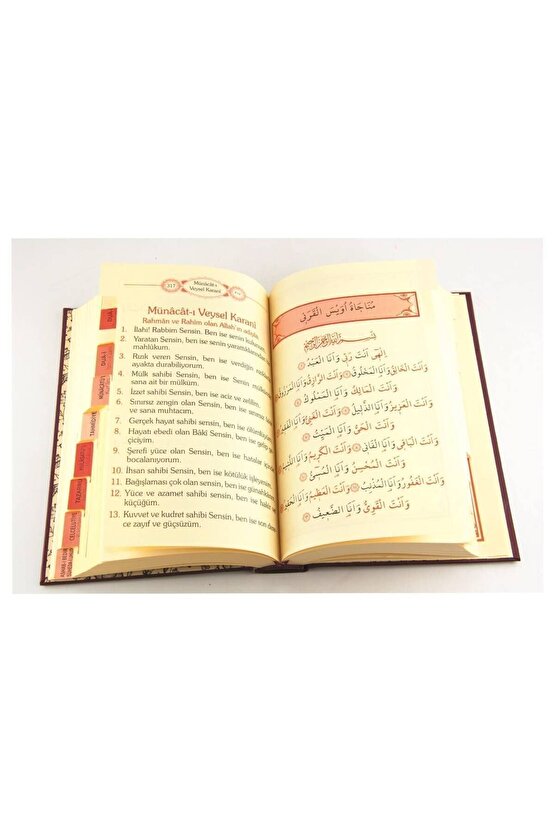 317
Münâcât-ı
Veysel Karanî
Münâcât-ı Veysel Karanî
Rahman ve Rahîm olan Allah'ın adıyla
1. İlahî! Rabbim Sensin. Ben ise senin kulunum
2. Yaratan Sensin, ben ise senin yaratıklarından
mahlûkum.
3. Rızık veren Sensin, ben ise verdiğin rızıkla
ayakta durabiliyorum.
4. Mülk sahibi Sensin, ben ise Senin mülkün
sana ait bir mülküm.
5. İzzet sahibi Sensin, ben ise aciz ve zelilim.
6. Sınırsız zengin olan Sensin, ben ise
ve sana muhtacım.
7. Gerçek hayat sahibi Sensin, ben ise ölümlüyüm
8. Hayatı ebedi olan Bâkî Sensin, ben ise gelip
çiciyim.
9. Şerefi yüce olan Sensin, ben ise hatalar
bocalanıyorum.
10. İhsan sahibi Sensin, ben ise kötülük işleyenim
11. Bağışlaması çok olan sensin, ben ise günahkârım
12. Yüce ve azamet sahibi Sensin, ben ise hakir ve
küçüğüm.
13. Kuvvet ve kudret sahibi Sensin, ben ise son dere
ce zayıf ve güçsüzüm.
DUA-I
MÜNACÂT-I
TAHMİDİYE
CELCELUTİYE
مُنَاجَاةُ اُوَيْسِ الْقَرَنِى
اِلٰهِى اَنْتَ رَبِّى وَاَنَا الْعَبْدُ
وَاَنْتَ الْخَالِقُ وَاَنَا الْمَخْلُوقُ وَاَنْتَ الرَّزَّاقُ وَاَنَا الْمَرْزُوقُ
وَاَنْتَ الْمَالِكُ وَاَنَا الْمَمْلُوكُ
وَاَنْتَ الْعَزِيزُ وَاَنَا الذَّلِيلُ وَاَنْتَ الْغَنِىُّ وَاَنَا الْفَقِيرُ
وَاَنْتَ الْحَىُّ وَاَنَا الْمَيِّتُ
وَاَنْتَ الْبَاقِى وَاَنَا الْفَانِى وَاَنْتَ الْكَرِيمُ وَاَنَا
وَاَنْتَ الْمُحْسِنُ وَاَنَا الْمُسِىءُ
وَاَنْتَ الْغَفُورُ وَاَنَا الْمُذْنِبُ وَاَنْتَ الْعَظِيمُ وَاَنَا الْحَقِيرُ
وَاَنْتَ الْقَوِىُّ وَاَنَا الضَّعِيفُ